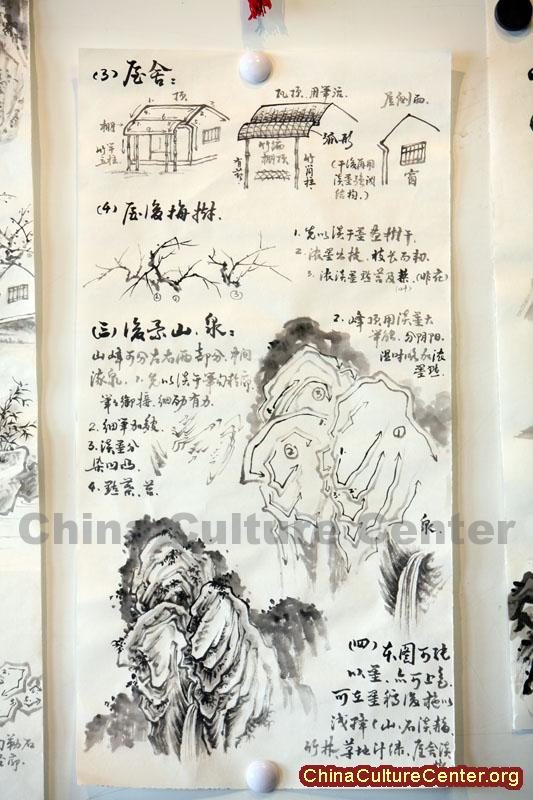 (3) 屋舍：
顶
棚
竹竿
立柱
瓦顶.用笔法
弧形
竹编
棚顶
竹前柱
屋侧面
窗
(干后再用
淡墨强调
结构.)
(4) 屋後梅树.
1. 先以淡干墨画树干
2. 浓墨出枝，枝长而韧
3. 浓淡墨点苔及蕊(叶花)
① ② ③
(三)後景山、泉：
山峰可分左右两部分.中间
流泉. 1. 先以淡干笔勾轮廓
细劲有力.
2. 细笔加皴
3. 淡墨分
染凹凸
4. 点叶、苔
2. 峰顶用淡墨大
笔 分阴阳.
湿时 加浓
墨点
① ② ③
泉.
(四) 本图可纯
以墨、亦可上色
可在墨稿後施以
浅绛(山、石淡赭
竹林、草地汁绿、屋舍淡
勒石
轮廓.
China Culture Center
ChinaCultureCenter.org